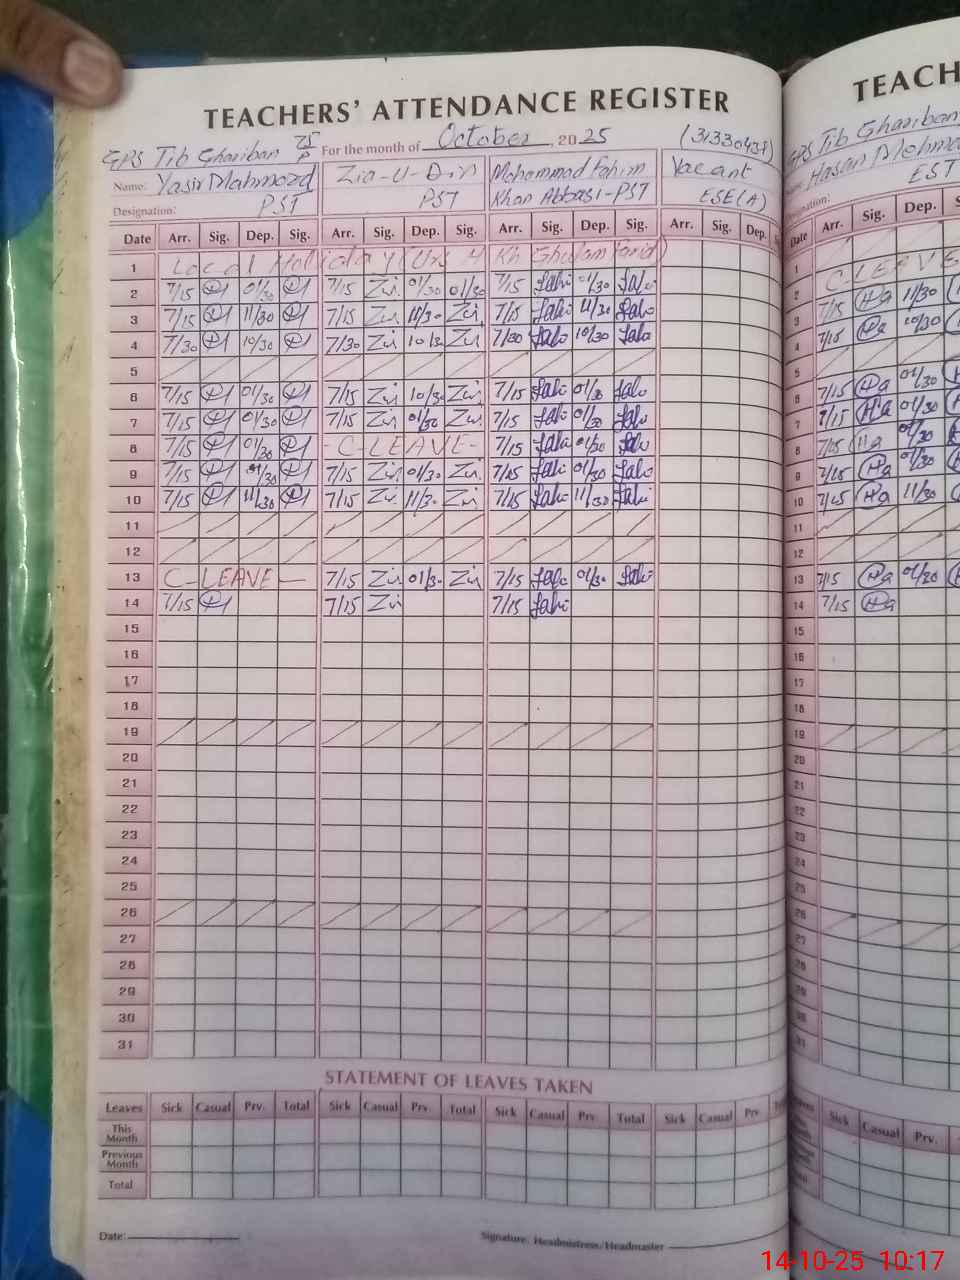 TEACHERS' ATTENDANCE REGISTER
GPS Tib Ghariban For the month of October, 2025 (31330438)
Name: Yasir Mahmood Zia-U-Din Mohammad Fahim Vacant
Designation: PST PST Khan Abbasi-PST ESE(A)
Date Arr. Sig. Dep. Sig. Arr. Sig. Dep. Sig. Arr. Sig. Dep. Sig. Arr. Sig. Dep.
1 Local Holiday (Urs H Kh Ghulam Farid)
2 7/15 01/30 7/15 Zia 01/30 01/30 7/15 Fahi 01/30 Fahi
3 7/15 11/30 7/15 Zia 11/30 Zia 7/15 Fahi 11/30 Fahi
4 7/30 10/30 7/30 Zia 10/30 Zia 7/30 Fahi 10/30 Fahi
5
6 7/15 01/30 7/15 Zia 10/30 Zia 7/15 Fahi 01/30 Fahi
7 7/15 01/30 7/15 Zia 01/30 Zia 7/15 Fahi 01/30 Fahi
8 7/15 01/30 -C-LEAVE- 7/15 Fahi 01/30 Fahi
9 7/15 01/30 7/15 Zia 01/30 Zia 7/15 Fahi 01/30 Fahi
10 7/15 11/30 7/15 Zia 11/30 Zia 7/15 Fahi 11/30 Fahi
11
12
13 C-LEAVE- 7/15 Zia 01/30 Zia 7/15 Fahi 01/30 Fahi
14 7/15 7/15 Zia 7/15 Fahi
15
16
17
18
19
20
21
22
23
24
25
26
27
28
29
30
31
STATEMENT OF LEAVES TAKEN
Leaves Sick Casual Prv. Total Sick Casual Prv. Total Sick Casual Prv. Total Sick Casual Prv.
This Month
Previous Month
Total
Date: Signature: Headmistress/Headmaster
TEACH
GPS Tib Ghariban
Hasan Mehmo
EST
Designation:
Date Arr. Sig. Dep.
1
2 C-LEAVE
3 7/15 Ha 11/30
4 7/15 Ha 10/30
5
6 7/15 Ha 01/30
7 7/15 Ha 01/30
8 7/15 Ha 01/30
9 7/15 Ha 01/30
10 7/15 Ha 11/30
11
12
13 7/15 Ha 01/30
14 7/15 Ha
15
16
17
18
19
20
21
22
23
24
25
26
27
28
29
30
31
Sick Casual Prv.
14-10-25 10:17